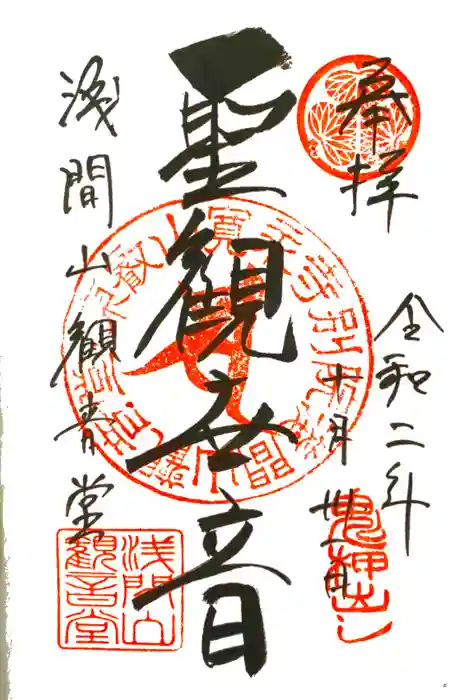 奉拝
令和二年
十月卅一日
聖観世音
浅間山観音堂
浅間山
観音堂